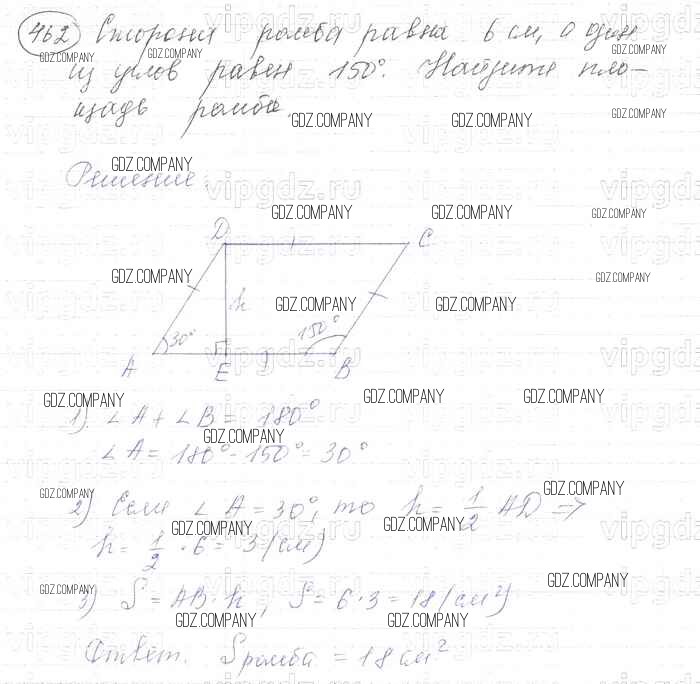 462 Сторона ромба равна 6 см, один
из углов равен 150°. Найдите пло-
щадь ромба.
Решение:
D C
h
30° 150°
A E B
1) ∠A + ∠B = 180°
∠A = 180° - 150° = 30°
2) Если ∠A = 30°, то h = 1/2 AD ⇒
h = 1/2 · 6 = 3 (см)
3) S = AB · h, S = 6 · 3 = 18 (см²)
Ответ. Sромба = 18 см²
GDZ.COMPANY
vipgdz.ru